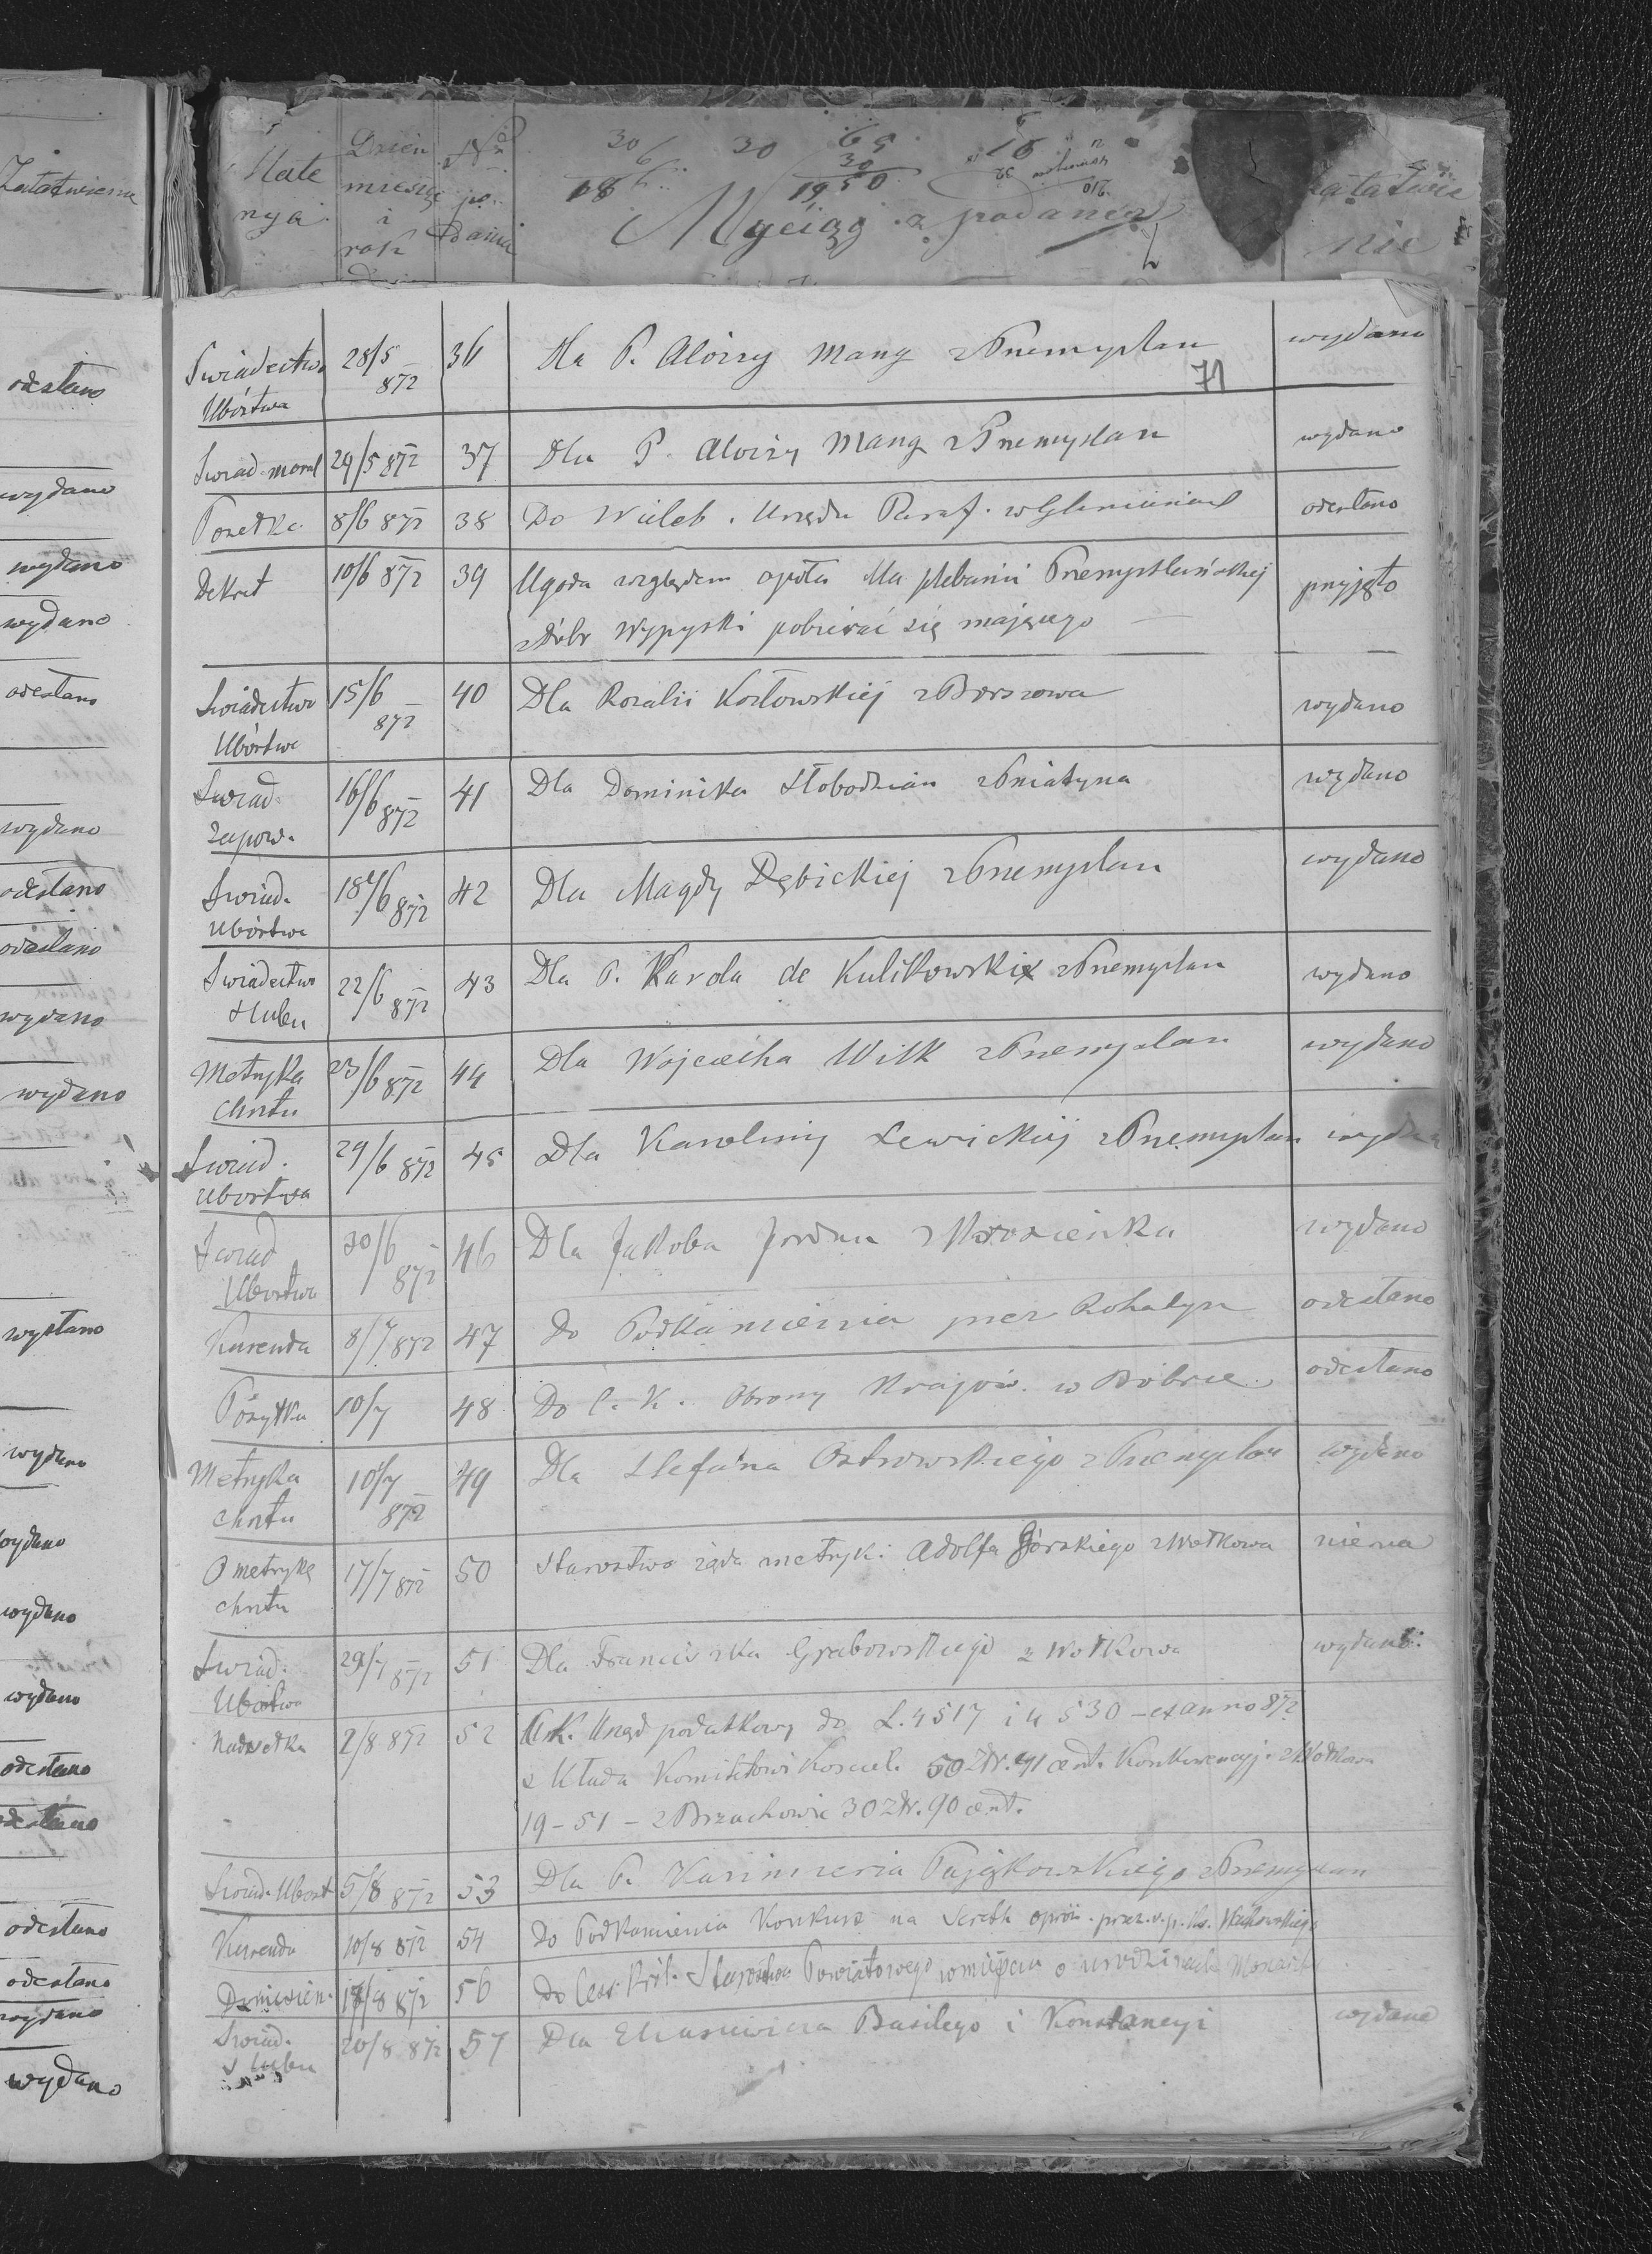 Załatwienie
Mate
rya
Dzień
miesię
i
rok
No
po
dania
30 6
18 6
30
65
30
19 50
Wyciąg z podania
załatwie
nie
odesłano
wydano
wydano
wydano
odesłano
wydano
odesłano
odesłano
wydano
wydano
wysłano
wydano
wydano
wydano
wydano
odesłano
odesłano
odesłano
odesłano
wydano
wydano
Świadectwo 28/5 36 Dla P. Aloizy Mang z Przemyslan wydano
Ubóstwa 872 71
Świad. moral 29/5 872 37 Dla P. Aloizy Mang z Przemyslan wydano
Poszetka 8/6 872 38 Do Wieleb. Urzędu Paraf. w Glinianach odesłano
Dekret 10/6 872 39 Ugoda względem opału dla plebanii Przemyslańskiej przyjęto
z Dóbr Wypyski pobierać się mającego
Świadectwo 15/6 40 Dla Rozalii Kozłowskiej z Borszowa wydano
Ubóstwa 872
Świad. 16/6 872 41 Dla Dominika Słobodzian z Pniatyna wydano
zapow.
Świad. 18/6 872 42 Dla Magdy Dębickiej z Przemyslan wydano
Ubóstwa
Świadectwo 22/6 872 43 Dla P. Karola de Kulikowski z Przemyslan wydano
Slubu
Metryka 23/6 872 44 Dla Wojciecha Wilk z Przemyslan wydano
Chrztu
Świad. 29/6 872 45 Dla Karoliny Lewickiej z Przemyslan wydano
Ubostwa
Świad 30/6 46 Dla Jakoba Jordan z wydano
Ubostwa 872
Kurenda 8/7 872 47 do Podkamienia przez Rohatyn odesłano
10/7 48 Do C. K. Obrony Krajow. w Bóbrce odesłano
Metryka 10/7 49 Dla Stefana Ostrowskiego z Przemyslan wydano
chrztu 872
O metrykę 17/7 872 50 Starostwo żąda metryk: Adolfa Górskiego z Wołkowa niema
chrztu
Świad. 29/7 872 51 Dla Franciszka Grabowskiego z Wołkowa wydano
Ubostwa
2/8 872 52 C.K. Urząd podatkowy do L. 4517 i 4530 – ex anno 872
z Kłada Komitetowi Kościel. 50 Złr. 41 cent. Konkurencyj. z Wołkowa
19 – 51 – z Brzuchowic 30 Złr. 90 cent.
Świad. Ubost 5/8 872 53 Dla P. Kazimierza z Przemyslan
Kurenda 10/8 872 54 do Podkamienia Konkurs na
Doniesien. 17/8 872 56 do Ces. Król. Starostwa Powiatowego o urodzinach Monarchy
Świad. 20/8 872 57 Dla Eliasiewicza Basilego i Konstancyi wydano
Slubu